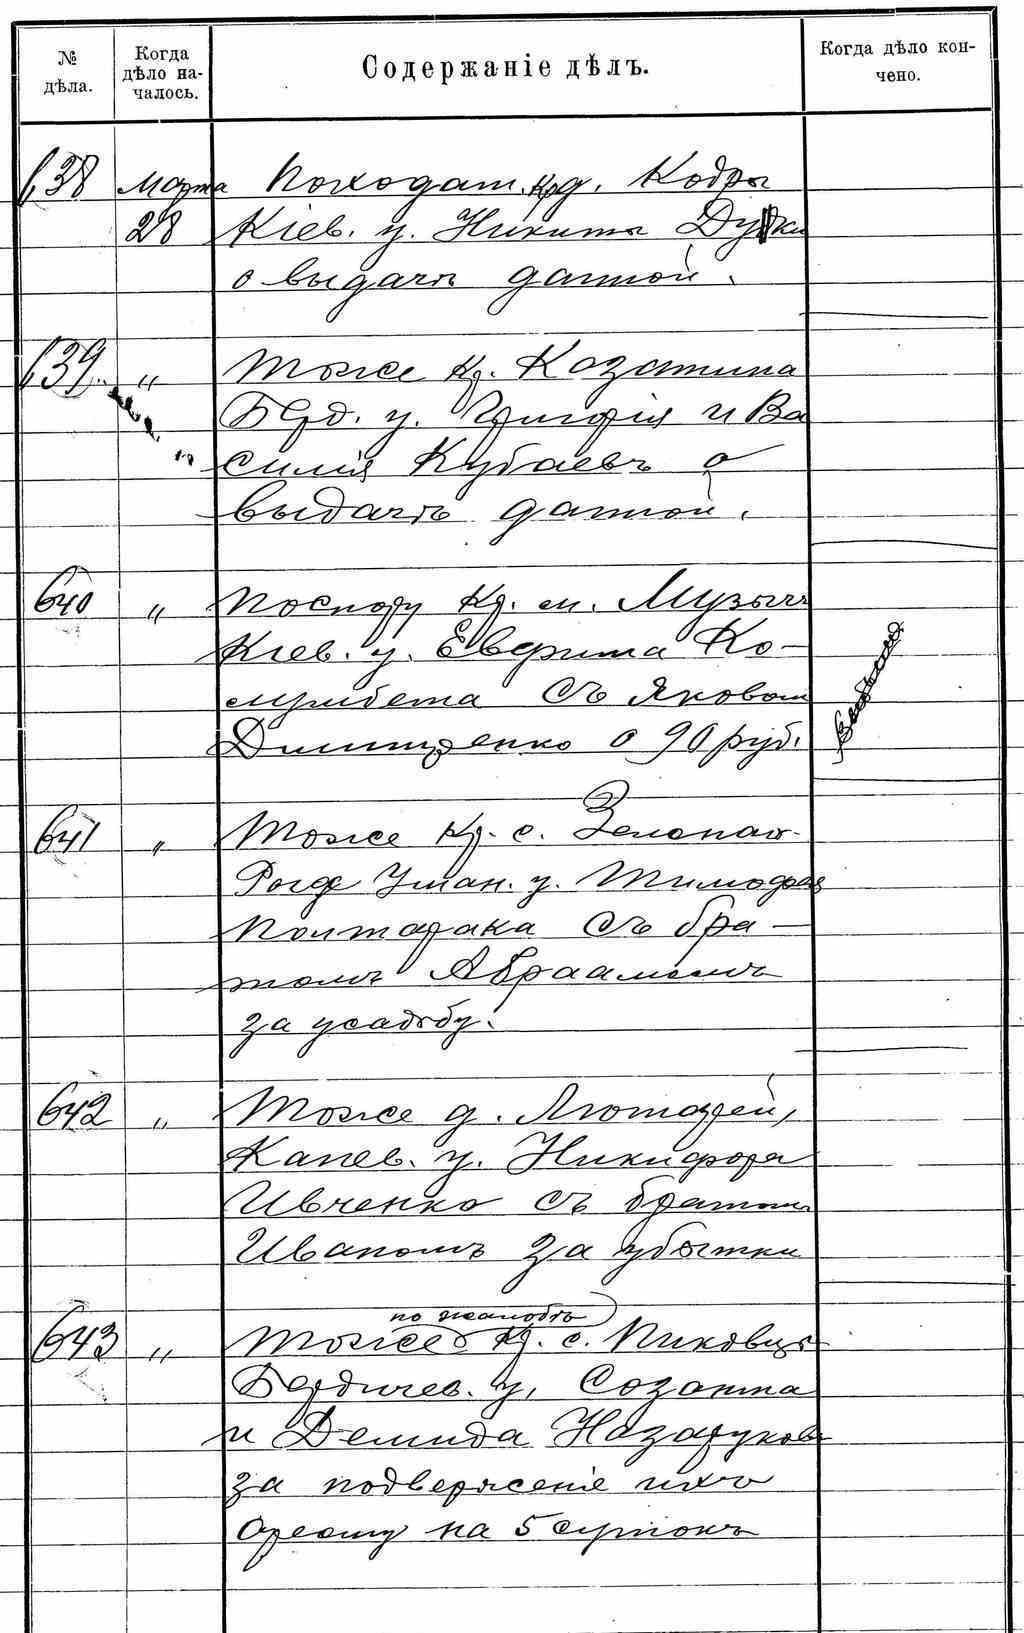 № дѣла.
Когда дѣло на-
чалось.
Содержаніе дѣлъ.
Когда дѣло кон-
чено.
638 Марта По ходат. кр. д. Кодры
28 Кіев. у. Никиты
о выдачѣ данной.
639 " Тоже кр. Козатина
Берд. у. Григорія и Ва
силія Кубаевъ о
выдачѣ данной.
640 " По спору кр. м. Музычъ
Кіев. у. Ефрима Ко-
съ Яковом
Дмитренко о 90 руб.
641 " Тоже кр. с. Зеленаго-
Рога Уман. у. Тимофея
Полтарака съ бра-
томъ Абраамомъ
за усадьбу.
642 " Тоже д. Лютарей,
Канев. у. Никифора
Ивченко съ братом
Иваномъ за убытки
по жалобѣ
643 " Тоже кр. с. Пиковца
Бердичев. у. Созонта
и Демида Назаруков
за подверженіе ихъ
аресту на 5 сутокъ